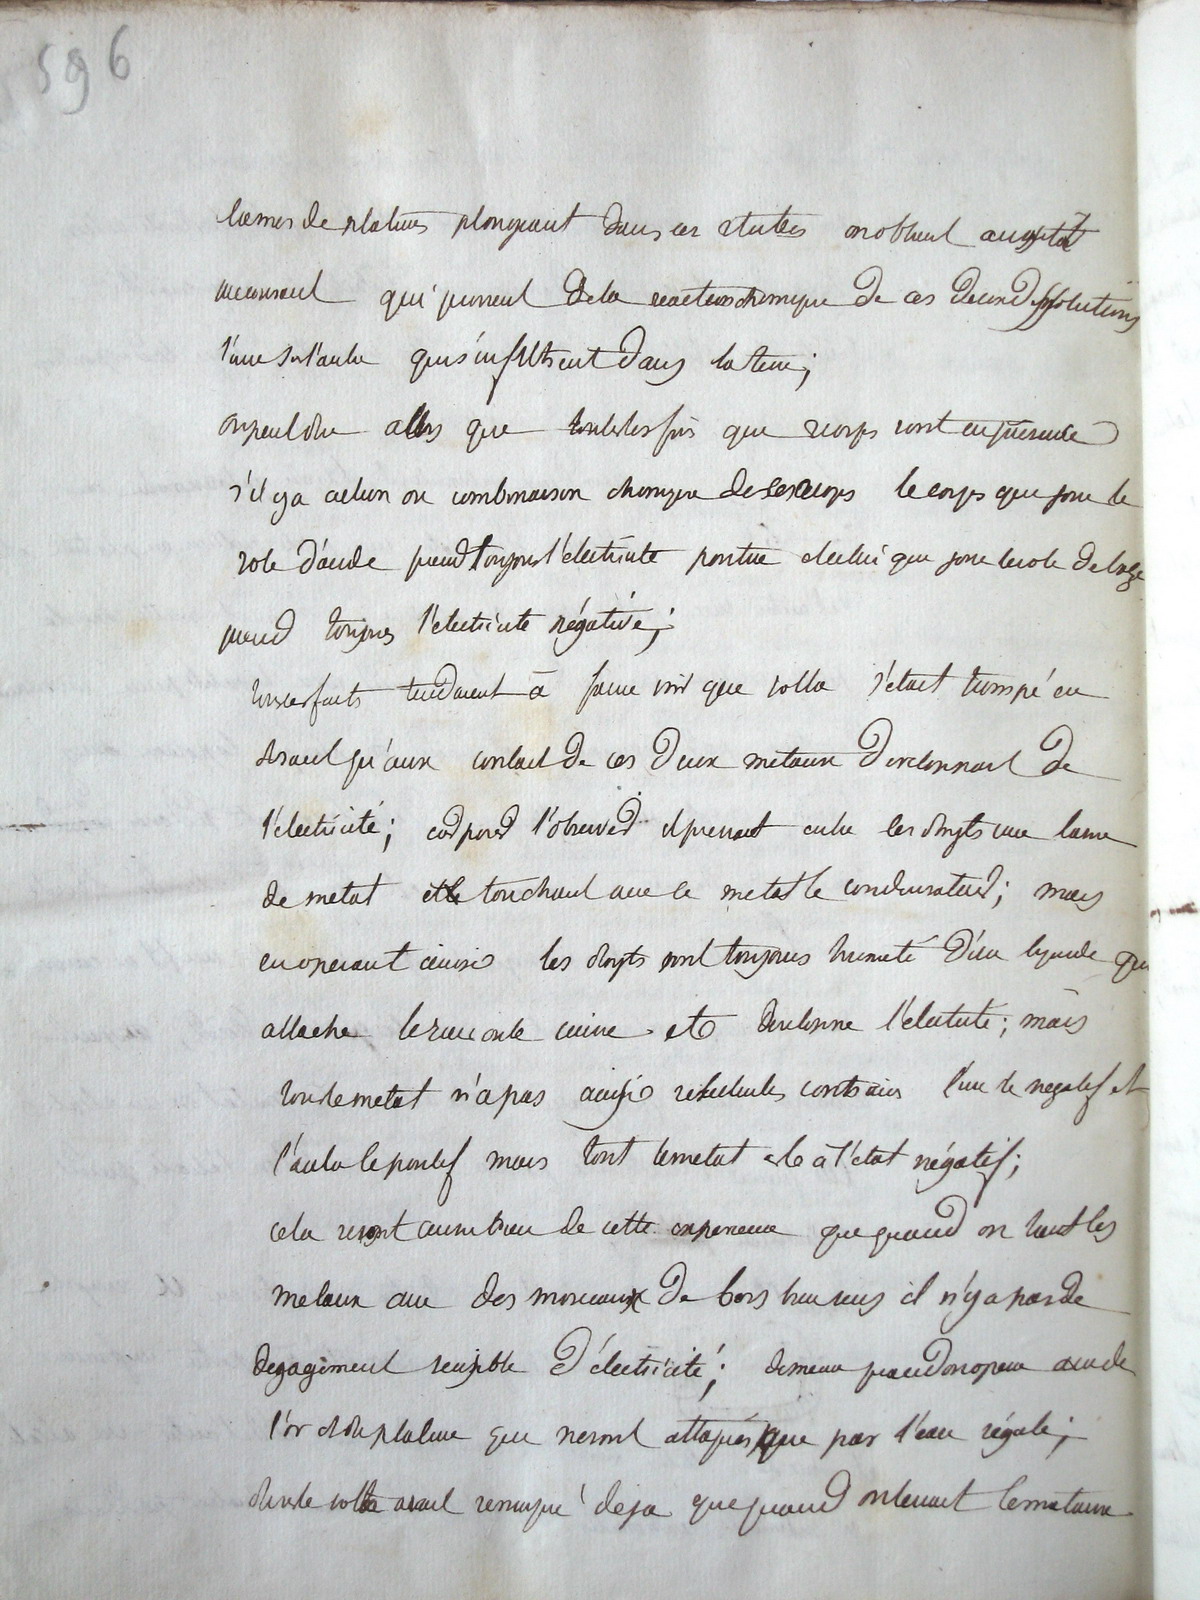 596
lames de platines plongeant dans ces solutées on obtient aussitôt
un courant qui provient de la reaction chimique de ces deux dissolutions
l'une sur l'autre qui s'infiltrent dans la terre;
on peut dire alors que toutes les fois que 2 corps sont en présence
s'il y a action ou combinaison chimique de ces corps le corps qui joue le
role d'acide prend toujours l'électricité positive et celui qui joue le role de base
prend toujours l'électricité négative;
tous ces faits tendaient à faire voir que volta s'était trompé en
disant qu'aux contact de ces deux metaux développait de
l'électricité; il prenait entre les doigts une lame
de metal et touchant avec ce metal le condensateur; mais
en operant ainsi les doigts sont toujours humecté d'un liquide qui
attache le zinc ou le cuivre et développe l'électricité; mais
tout le metal n'a pas ainsi contraires l'une le negatif et
l'autre le positif mais tout le metal est à l'état négatif;
cela aussi bien de cette experience que quand on tient les
metaux avec des morceaux de bois bien secs il n'y a pas de
degagement sensible d'électricité; de meme quand on opere avec de
l'or et du platine qui ne sont attaqués que par l'eau régale;
volta avait remarqué deja que quand on tenait le metaux